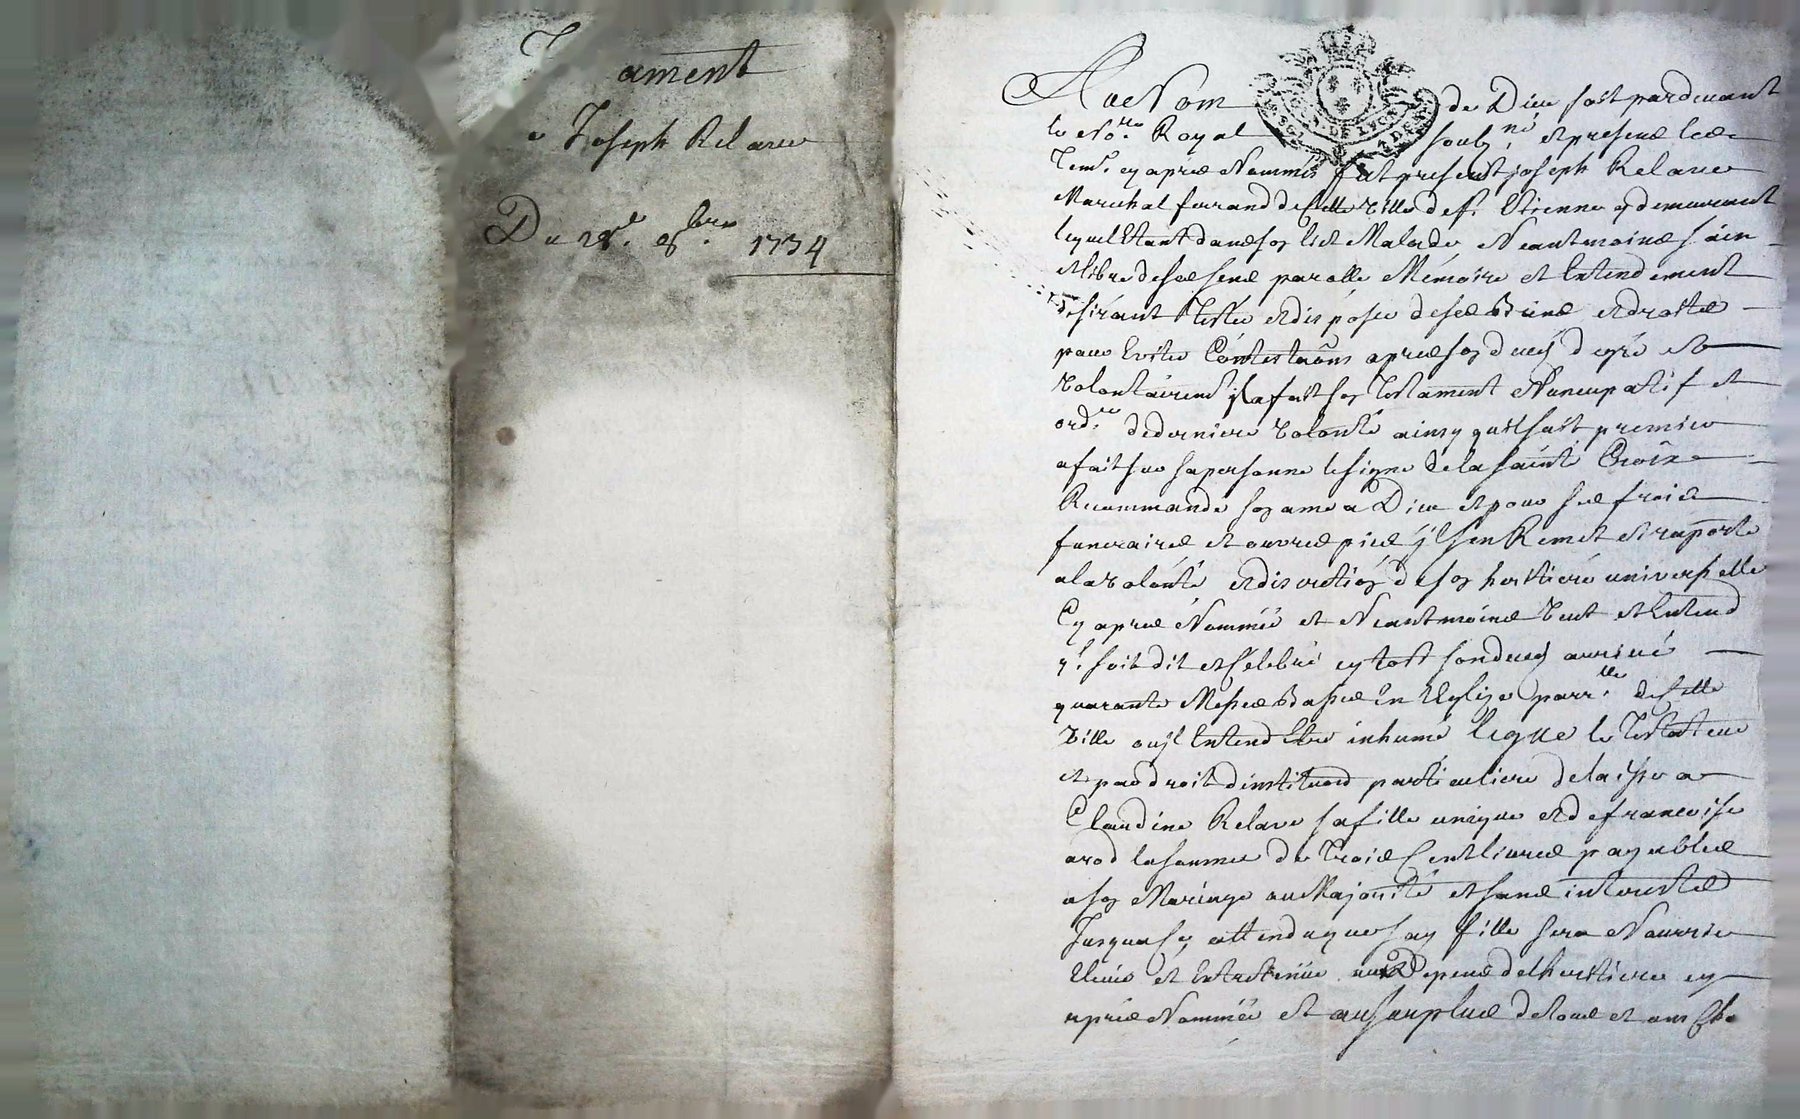 T ament
e Joseph Relave
Du 28e. 8bre 1734
Au Nom de Dieu soit pardevant
le No.re Royal soubz.né et presens les
Tem.s cy apres Nommés fut present joseph Relave
Marechal ferrand de cette ville de St. Etienne y demeurant
lequel Etant dans son lict Malade Neantmoins sain
et libre de ses sens parolle Mémoire et Entendement
désirant Tester et disposer de ses Biens et droits
pour Eviter Contestaons apres son deces de gré et
volontairemt il a fait son Testament Nuncupatif et
ord.re de derniere volonté ainsy quil suit premier
a fait sur sa personne le signe de la sainte Croix
Recommande son ame a Dieu et pour ses frais
funeraires et œuvres pies jl s'en Remet et raporte
a la volonté et discretion de son heritiere universelle
Cy apres Nommée et Neantmoins veut et Entend
q.l soit dit et célébré cytost son deces arrivé
quarante Messes Basses En l'Eglize parr.lle de cette
ville ou jl Entend Etre inhumé legue le Testateur
et par droit d'institu͞on particuliere delaisse a
Claudine Relave sa fille unique et de francoise
arod la somme de Trois Cent livres payables
a son Mariage ou Majorité et sans interests
Jusques a ce attendu que sa fille sera Nourrie
Elevée et Entretenüe aux Depens de l'heritiere cy
apres Nommée et au surplus de tous et uns Ch.